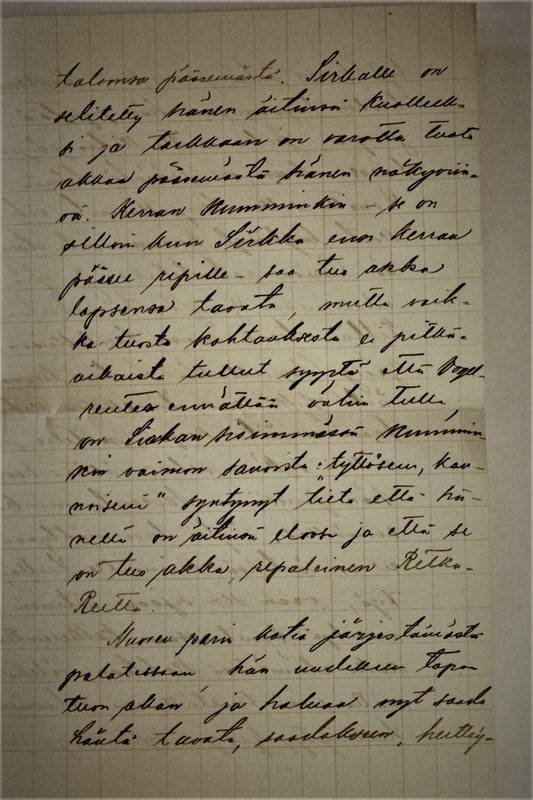 taloonsa pääsemästä. Sirkalle on
selitetty hänen äitinsä kuolleek-
si ja tarkkaan on varottu tuota
akkaa pääsemästä hänen näkyviin-
sä. Kerran kumminkin – se on
silloin kun Sirkka ensi kerran
pääsee ripille – saa tuo akka
lapsensa tavata, mutta vaik-
ka tuosta kohtauksesta ei pitkä-
aikaista tullut syystä että
ennättää väliin tulla,
on Sirkan sisimmässä kummin-
kin vaimon sanoista: "tyttöseni, kau-
noiseni" syntynyt tieto että hä-
nellä on äitinsä elossa ja että se
on tuo akka, repaleinen Retka-
Reetta.
Nuoren parin kotia järjestämästä
palatessaan hän uudelleen tapaa
tuon akan ja haluaa nyt saada
häntä tavata, saadakseen,